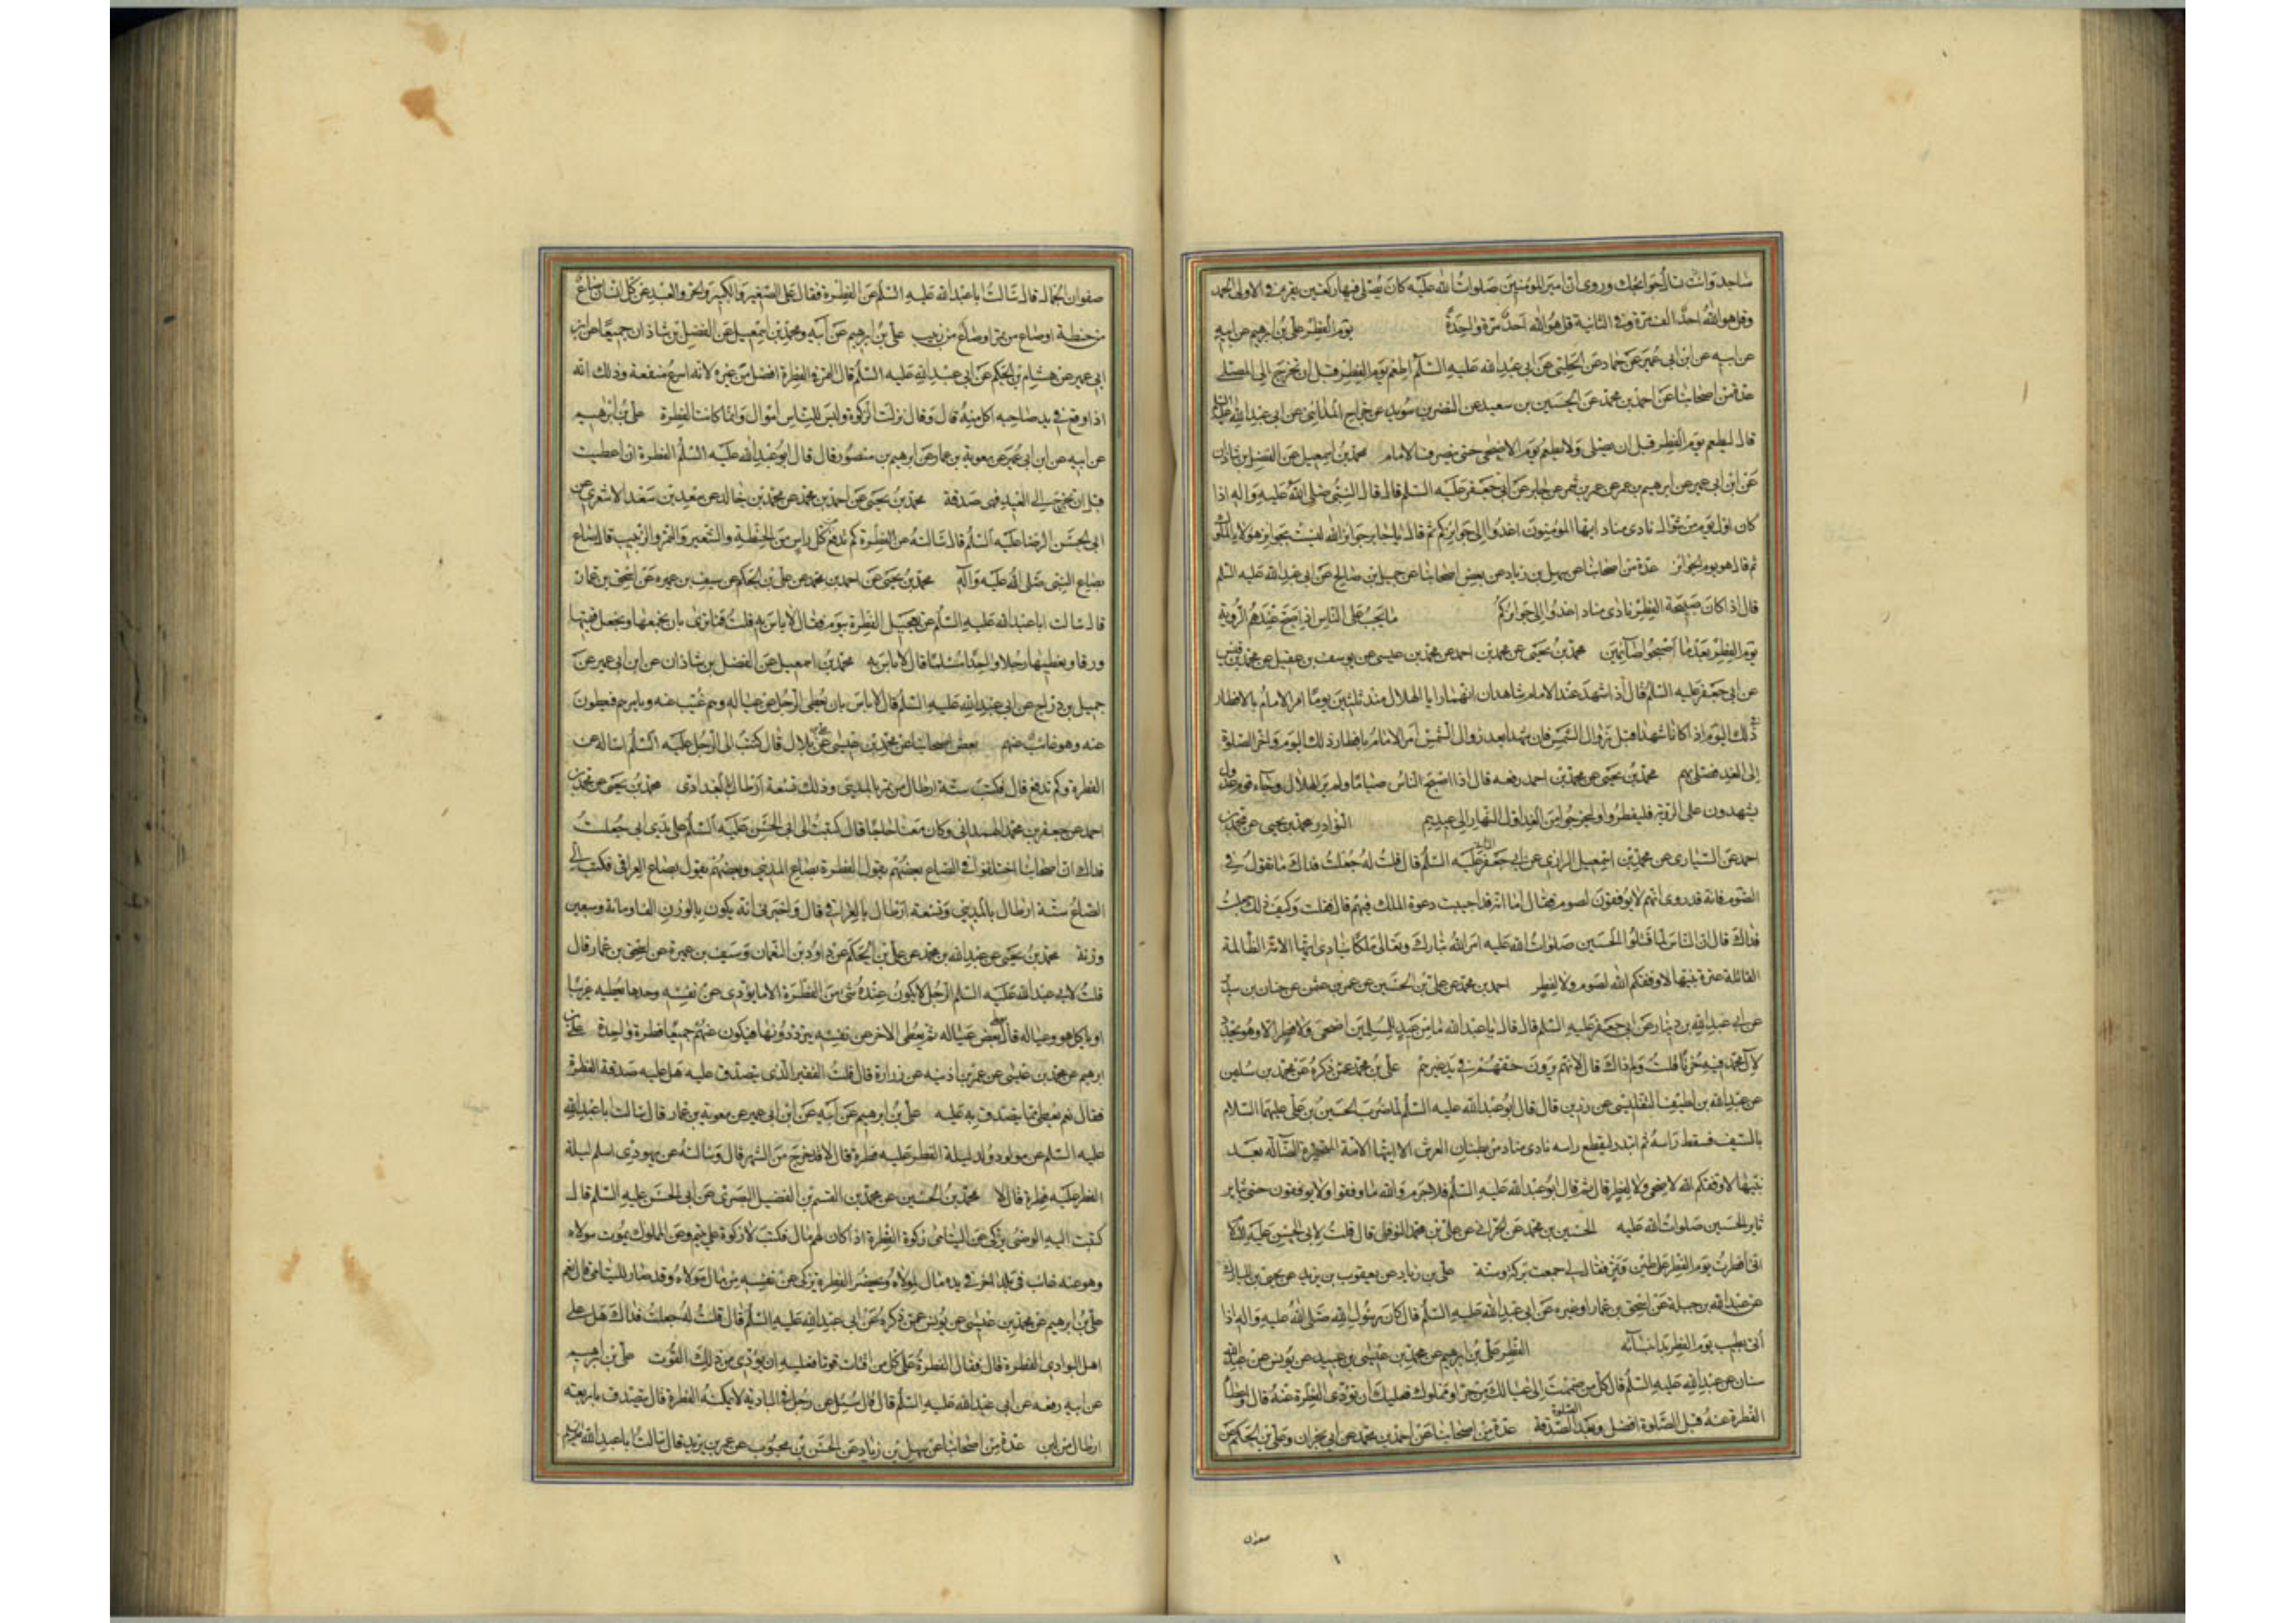 ساجد وانت تسأل حوائجك وروى ان امير المؤمنين صلوات الله عليه كان يصلى فيها ركعتين يقرء فى الاولى الحمد
وقل هو الله احد الف مرة وفى الثانية قل هو الله احد مرة واحدة يوم الفطر على بن ابرهيم عن ابيه
عن ابيه عن ابن ابى عمير عن حماد عن الحلبى عن ابى عبد الله عليه السلم اطعم يوم الفطر قبل ان تخرج الى المصلى
عدة من اصحابنا عن احمد بن محمد عن الحسين بن سعيد عن النضر بن سويد عن جراح المدائنى عن ابى عبد الله عليه السلم
قال ليطعم يوم الفطر قبل ان يصلى ولا يطعم يوم الاضحى حتى ينصرف الامام محمد بن اسمعيل عن الفضل بن شاذان
عن ابن ابى عمير عن ابرهيم بن عمر عن عمرو بن شمر عن جابر عن ابى جعفر عليه السلم قال قال النبى صلى الله عليه واله اذا
كان اول يوم من شوال نادى مناد ايها المؤمنون اغدوا الى جوائزكم ثم قال يا جابر جوائز الله ليست بجوائز هؤلاء الملوك
ثم قال هو يوم الجوائز عدة من اصحابنا عن سهل بن زياد عن بعض اصحابنا عن جميل بن صالح عن ابى عبد الله عليه السلم
قال اذا كان صبيحة الفطر نادى مناد اغدوا الى جوائزكم ما يجب على الناس اذا صح عندهم الرؤية
يوم الفطر بعد ما اصبحوا صائمين محمد بن يحيى عن محمد بن احمد عن محمد بن عيسى عن يوسف بن عقيل عن محمد بن قيس
عن ابى جعفر عليه السلم قال اذا شهد عند الامام شاهدان انهما رايا الهلال منذ ثلثين يوما امر الامام بالافطار
ذلك اليوم اذا كانا شهدا قبل زوال الشمس فان شهدا بعد زوال الشمس امر الامام بافطار ذلك اليوم واخر الصلوة
الى الغد فصلى بهم محمد بن يحيى عن محمد بن احمد رفعه قال اذا اصبح الناس صياما ولم يروا الهلال وجاء قوم عدول
يشهدون على الرؤية فليفطروا وليخرجوا من الغد اول النهار الى عيدهم النوادر محمد بن يحيى عن محمد بن
احمد عن السيارى عن محمد بن اسمعيل الرازى عن ابى جعفر الثانى عليه السلم قال قلت له جعلت فداك ما تقول فى
الصوم فانه قد روى انهم لا يوفقون لصوم فقال اما انه قد اجيبت دعوة الملك فيهم قال فقلت وكيف ذلك جعلت
فداك قال ان الناس لما قتلوا الحسين صلوات الله عليه امر الله تبارك وتعالى ملكا ينادى ايتها الامة الظالمة
القاتلة عترة نبيها لا وفقكم الله لصوم ولا لفطر احمد بن محمد عن على بن الحسين عن عمرو بن عثمن عن حنان بن سدير
عن ابى عبد الله بن دينار عن ابى جعفر عليه السلم قال قال يا عبد الله ما من عيد للمسلمين اضحى ولا فطر الا وهو يجدد
لآل محمد فيه حزنا قلت ولم ذاك قال لانهم يرون حقهم فى يد غيرهم على بن محمد عمن ذكره عن محمد بن سليمن
عن عبد الله بن لطيف التفليسى عن رزين قال قال ابو عبد الله عليه السلم لما ضرب الحسين بن على عليهما السلام
بالسيف فسقط راسه ثم ابتدر ليقطع راسه نادى مناد من بطنان العرش الا ايتها الامة المتحيرة الضالة بعد
نبيها لا وفقكم الله لاضحى ولا لفطر قال ثم قال ابو عبد الله عليه السلم فلا جرم والله ما وفقوا ولا يوفقون حتى يثار
ثائر الحسين صلوات الله عليه الحسين بن محمد عن الحرانى عن على بن محمد النوفلى قال قلت لابى الحسن عليه السلم
انى افطرت يوم الفطر على طين وتمر فقال لى جمعت بركة وسنة على بن زياد عن يعقوب بن يزيد عن يحيى بن المبارك
عن عبد الله بن جبلة عن اسحق بن عمار او غيره عن ابى عبد الله عليه السلم قال كان رسول الله صلى الله عليه واله اذا
أتى بطيب يوم الفطر بدا بنسائه الفطر على بن ابرهيم عن محمد بن عيسى بن عبيد عن يونس عن عبد الله
سنان عن عبد الله عليه السلم قال كل من ضممت الى عيالك من حر او مملوك فعليك ان تؤدى الفطرة عنه قال واعطاء
الفطرة عنه قبل الصلوة افضل وبعد الصلوة الصدقة عدة من اصحابنا عن احمد بن محمد عن ابى نجران وعلى بن الحكم عن
صفوان
صفوان الجمال قال سالت ابا عبد الله عليه السلم عن الفطرة فقال على الصغير والكبير والحر والعبد عن كل انسان صاع
من حنطة او صاع من تمر او صاع من زبيب على بن ابرهيم عن ابيه ومحمد بن اسمعيل عن الفضل بن شاذان جميعا عن ابن
ابى عمير عن هشام بن الحكم عن ابى عبد الله عليه السلم قال التمر فى الفطرة افضل من غيره لانه اسرع منفعة وذلك انه
اذا وقع فى يد صاحبه اكل منه قال وقال نزلت الزكوة وليس للناس اموال وانما كانت الفطرة على بن ابرهيم
عن ابيه عن ابن ابى عمير عن معوية بن عمار عن ابرهيم بن منصور قال قال ابو عبد الله عليه السلم الفطرة ان اعطيت
قبل ان تخرج الى العيد فهى صدقة محمد بن يحيى عن احمد بن محمد عن محمد بن خالد عن سعد بن سعد الاشعرى عن
ابى الحسن الرضا عليه السلم قال سالته عن الفطرة كم تدفع عن كل راس من الحنطة والشعير والتمر والزبيب قال صاع
بصاع النبى صلى الله عليه وآله محمد بن يحيى عن احمد بن محمد عن على بن الحكم عن سيف بن عميره عن اسحق بن عمار
قال سالت ابا عبد الله عليه السلم عن تعجيل الفطرة بيوم فقال لا باس به قلت فما ترى بان نجمعها ونجعل قيمتها
ورقا ونعطيها رجلا واحدا مسلما قال لا باس به محمد بن اسمعيل عن الفضل بن شاذان عن ابن ابى عمير عن
جميل بن دراج عن ابى عبد الله عليه السلم قال لا باس بان يعطى الرجل عن عياله وهم غيب عنه ويامرهم فيعطون
عنه وهو غائب عنهم بعض اصحابنا عن محمد بن عيسى عن على بن بلال قال كتبت الى الرجل عليه السلم اساله عن
الفطرة وكم تدفع قال فكتب ستة ارطال من تمر بالمدينى وذلك تسعة ارطال بالبغدادى محمد بن يحيى عن محمد بن
احمد عن جعفر بن محمد الهمدانى وكان معنا حاجا قال كتبت الى ابى الحسن عليه السلم على يدى ابى جعلت
فداك ان اصحابنا اختلفوا فى الصاع بعضهم يقول الفطرة بصاع المدينى وبعضهم يقول بصاع العراقى فكتب الى
الصاع ستة ارطال بالمدينى وتسعة ارطال بالعراقى قال واخبرنى انه يكون بالوزن الفا ومائة وسبعين
وزنة محمد بن يحيى عن عبد الله بن محمد عن على بن الحكم عن داود بن النعمان وسيف بن عميرة عن اسحق بن عمار قال
قلت لابى عبد الله عليه السلم الرجل لا يكون عنده شئ من الفطرة الا ما يؤدى عن نفسه وحدها يعطيه غريبا
او ياكل هو وعياله قال يعطى بعض عياله ثم يعطى الاخر عن نفسه يترددونها فيكون عنهم جميعا فطرة واحدة على بن
ابرهيم عن محمد بن عيسى عن عمر بن اذنيه عن زرارة قال قلت الفقير الذى يتصدق عليه هل عليه صدقة الفطرة
فقال نعم يعطى مما يتصدق به عليه على بن ابرهيم عن ابيه عن ابن ابى عمير عن معوية بن عمار قال سالت ابا عبد الله
عليه السلم عن مولود ولد ليلة الفطر عليه فطرة قال لا قد خرج من الشهر قال وسالته عن يهودى اسلم ليلة
الفطر عليه فطرة قال لا محمد بن الحسين عن محمد بن القسم بن الفضيل البصرى عن ابى الحسن عليه السلم قال
كتبت اليه الوصى يزكى عن اليتامى زكوة الفطرة اذا كان لهم مال فكتب لا زكوة على يتيم وعن المملوك يموت مولاه
وهو عنه غائب فى بلد اخر وفى يده مال لمولاه ويحضر الفطرة يزكى عن نفسه من مال مولاه وقد صار لليتامى قال نعم
على بن ابرهيم عن محمد بن عيسى عن يونس عمن ذكره عن ابى عبد الله عليه السلم قال قلت له جعلت فداك هل على
اهل البوادى الفطرة قال فقال الفطرة على كل من اقتات قوتا فعليه ان يؤدى من ذلك القوت على بن ابرهيم
عن ابيه رفعه عن ابى عبد الله عليه السلم قال قال سئل عن رجل فى البادية لا يمكنه الفطرة قال يتصدق باربعة
ارطال من لبن عدة من اصحابنا عن سهل بن زياد عن الحسن بن محبوب عن عمر بن يزيد قال سالت ابا عبد الله عليه السلم